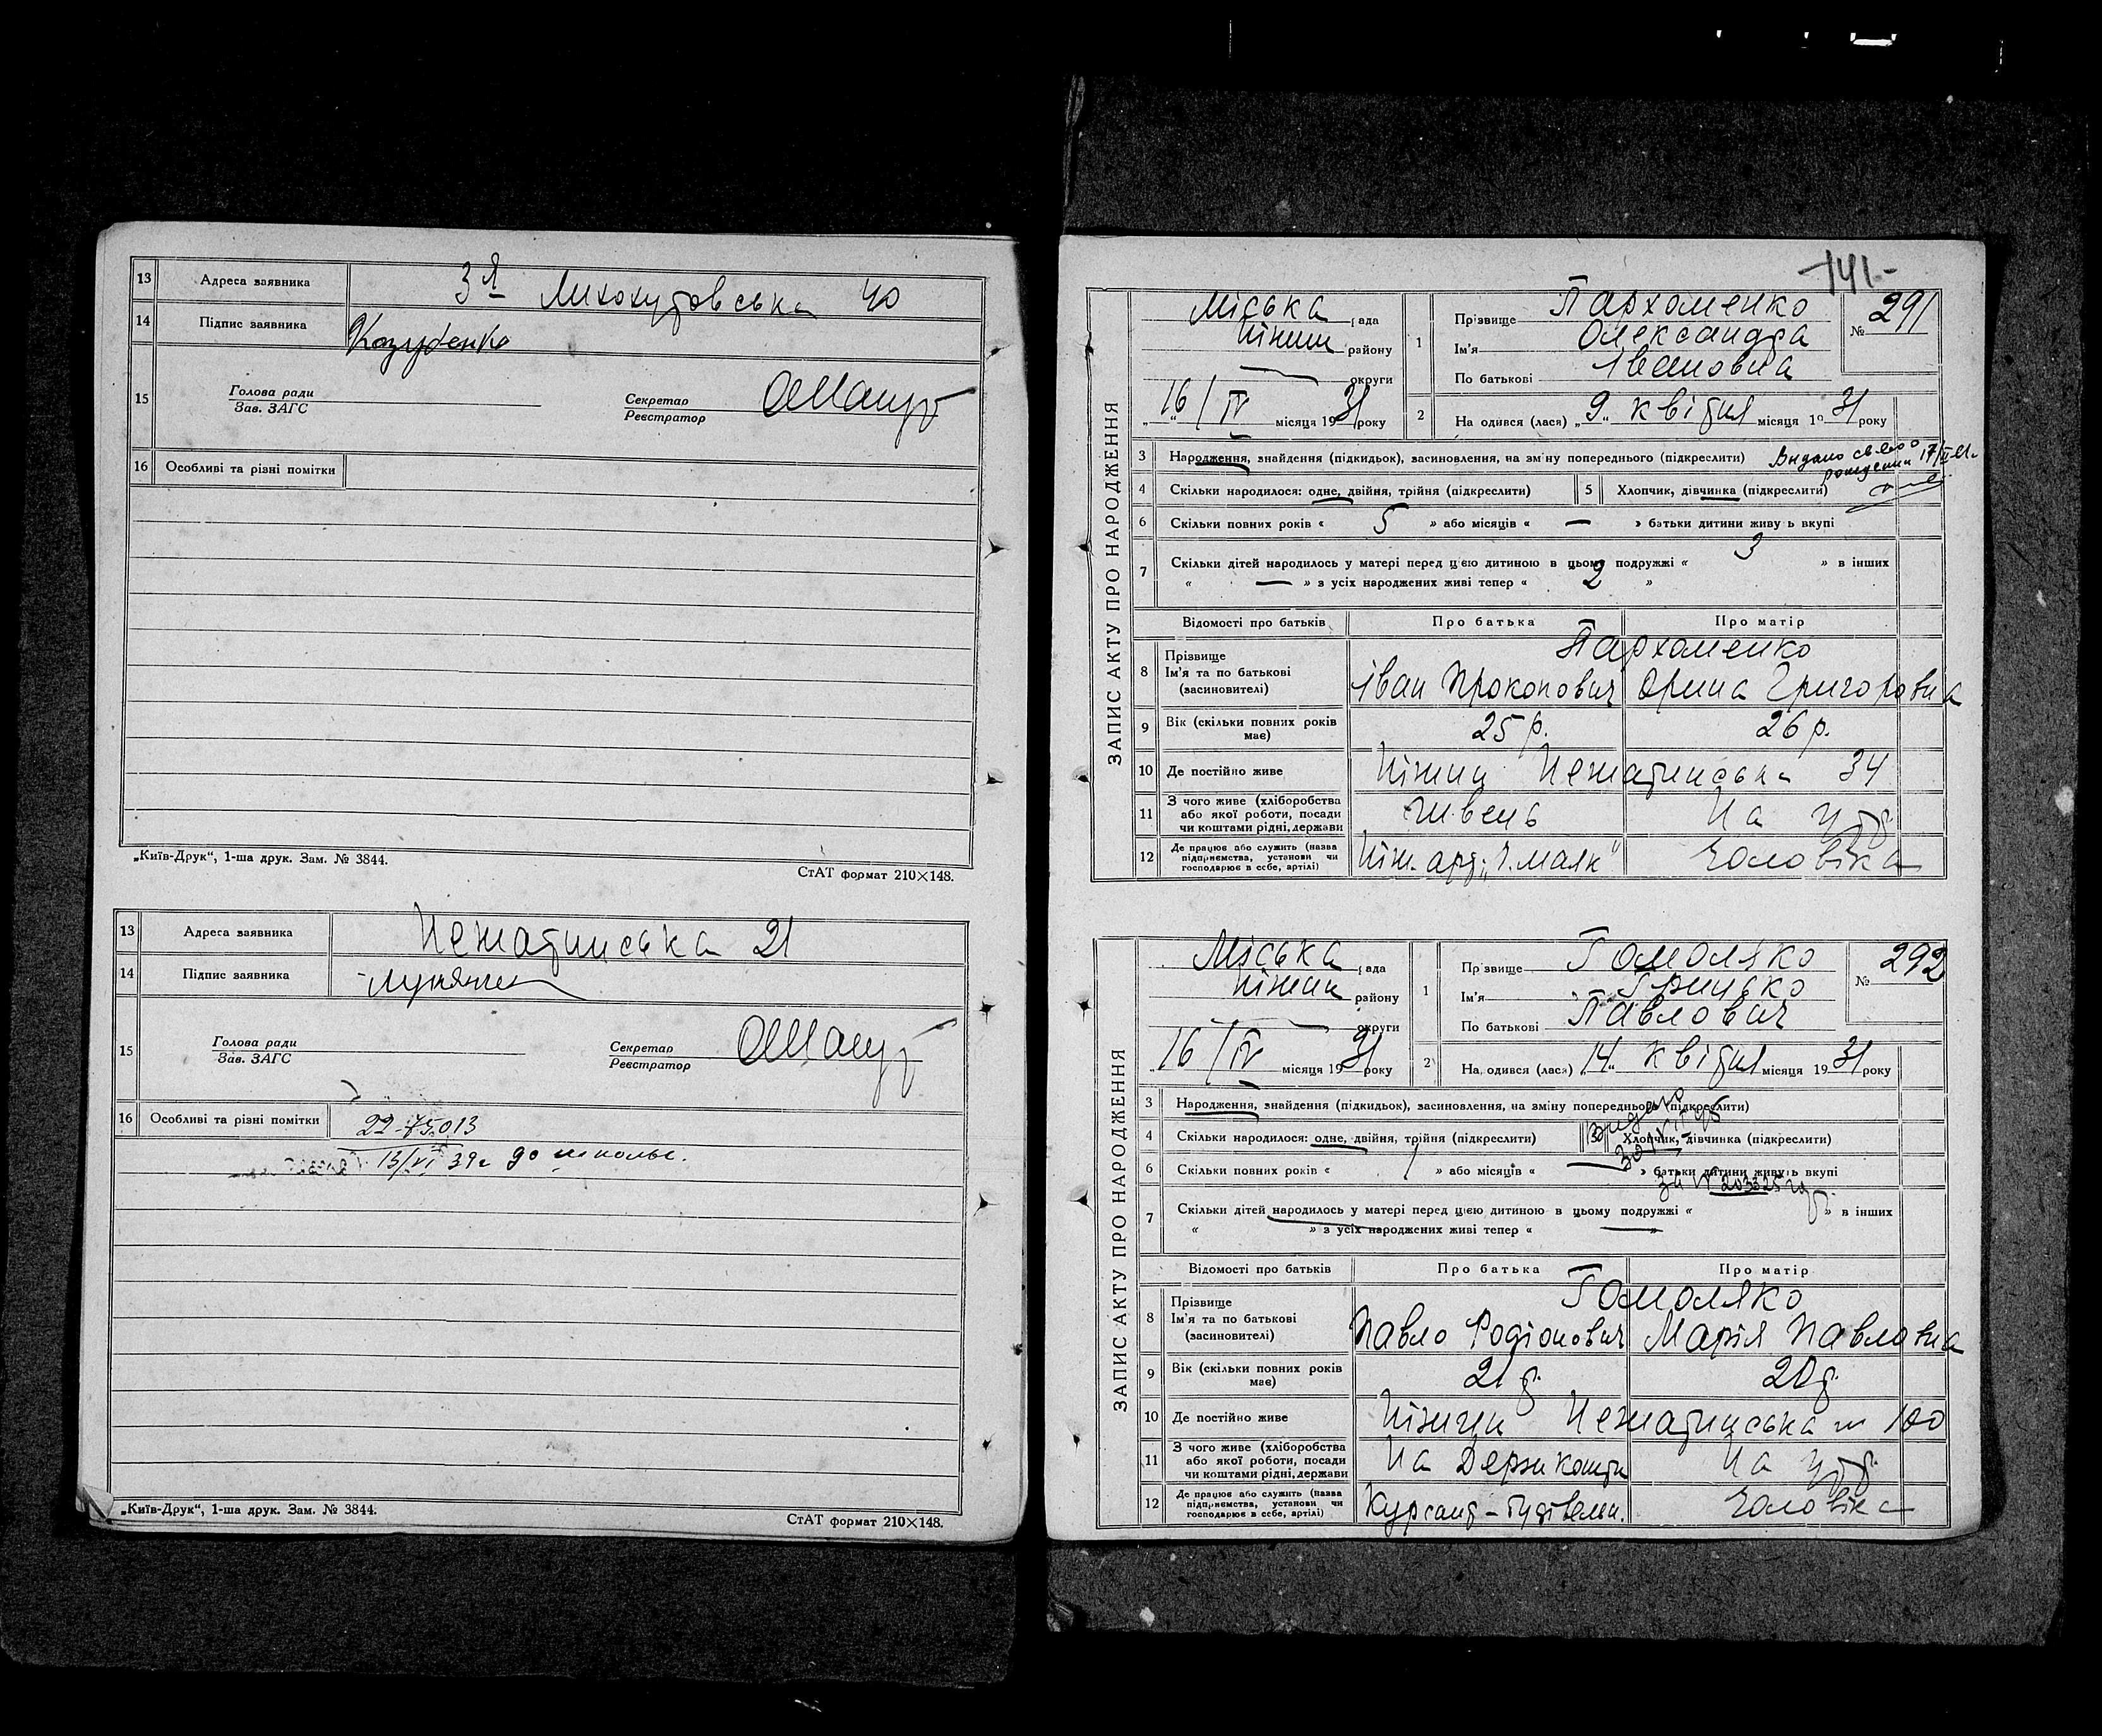 13 Адреса заявника 3я 40
14 Підпис заявника Козубенко
15 Голова ради Секретар
Зав. ЗАГС Реєстратор
16 Особливі та різні помітки
„Київ-Друк“, 1-ша друк. Зам. № 3844.
СтАТ формат 210×148.
13 Адреса заявника Нежатинська 21
14 Підпис заявника
15 Голова ради Секретар
Зав. ЗАГС Реєстратор
16 Особливі та різні помітки 22-75013
13/VI 39г до школы.
„Київ-Друк“, 1-ша друк. Зам. № 3844.
СтАТ формат 210×148.
-141-
ЗАПИС АКТУ ПРО НАРОДЖЕННЯ
Міська рада
Ніжин району
округи
„16“ / IV місяця 1931 року
1 Прізвище Пархоменко № 291
Ім'я Олександра
По батькові Івановна
2 Народився (лася) „9“ квітня місяця 1931 року
3 Народження, знайдення (підкидьок), засиновлення, на зміну попереднього (підкреслити)
4 Скільки народилося: одне, двійня, трійня (підкреслити) 5 Хлопчик, дівчинка (підкреслити)
6 Скільки повних років « 5 » або місяців « — » батьки дитини живуть вкупі
7 Скільки дітей народилось у матері перед цією дитиною в цьому подружжі « 3 » в інших
« — » з усіх народжених живі тепер « 2 »
Відомості про батьків Про батька Про матір
8 Прізвище Пархоменко
Ім'я та по батькові Іван Прокопович Орина Григоровна
(засиновителі)
9 Вік (скільки повних років має) 25 р. 26 р.
10 Де постійно живе Ніжин Нежатинська 34
11 З чого живе (хліборобства або якої роботи, посади чи коштами рідні, держави Швець На утр.
12 Де працює або служить (назва підприємства, установи чи господарює в себе, артілі) Ніж. арт. „Ч. маяк“ Чоловіка
ЗАПИС АКТУ ПРО НАРОДЖЕННЯ
Міська рада
Ніжин району
округи
„16 / IV місяця 1931 року
1 Прізвище Гомоляко № 292
Ім'я Грицько
По батькові Павлович
2 Народився (лася) „14“ квітня місяця 1931 року
3 Народження, знайдення (підкидьок), засиновлення, на зміну попереднього (підкреслити)
4 Скільки народилося: одне, двійня, трійня (підкреслити) 5 Хлопчик, дівчинка (підкреслити)
6 Скільки повних років « 1 » або місяців « — » батьки дитини живуть вкупі
за № 203325
7 Скільки дітей народилось у матері перед цією дитиною в цьому подружжі « » в інших
« » з усіх народжених живі тепер « — »
Відомості про батьків Про батька Про матір
8 Прізвище Гомоляко
Ім'я та по батькові Павло Родіонович Марія Павловна
(засиновителі)
9 Вік (скільки повних років має) 21 р. 20 р.
10 Де постійно живе Ніжин Нежатинська 100
11 З чого живе (хліборобства або якої роботи, посади чи коштами рідні, держави На Держ кошти На утр.
12 Де працює або служить (назва підприємства, установи чи господарює в себе, артілі) Курсант - будівельн. Чоловіка